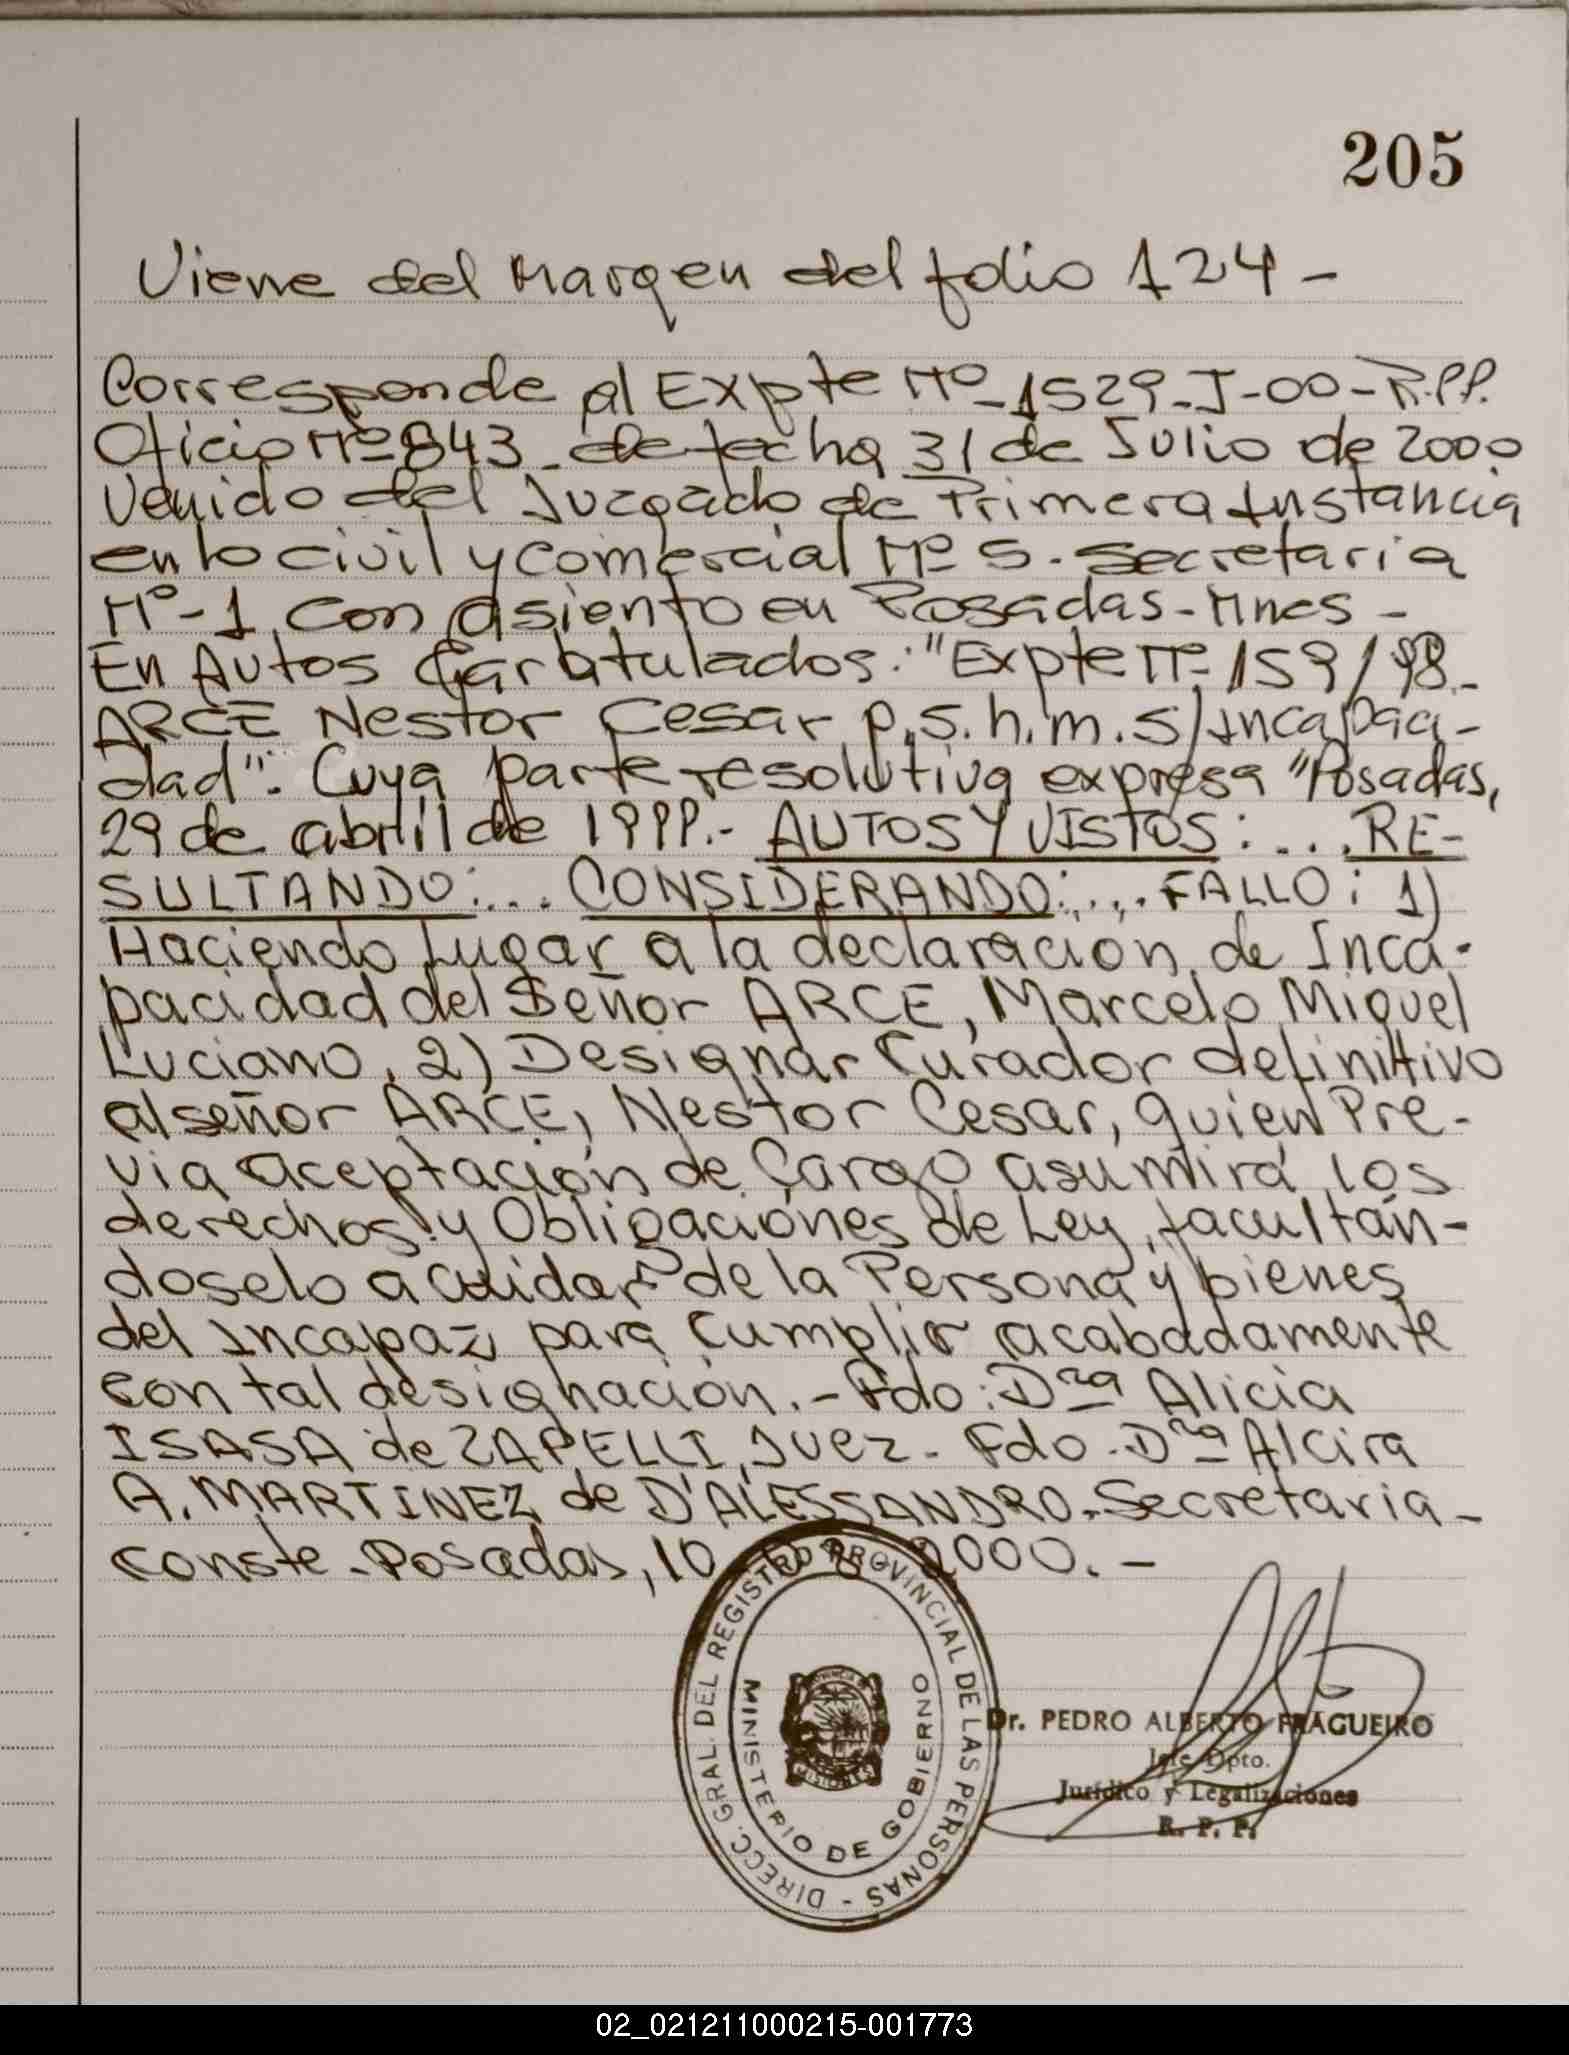 205
Viene del Margen del folio 124 -
Corresponde al Expte Nº- 1529-J-00-R.P.P.
Oficio Nº 843 - de fecha 31 de Julio de 2000
Venido del Juzgado de Primera Instancia
en lo civil y comercial Nº 5. secretaria
Nº-1, con asiento en Posadas - Mnes -
En Autos Caratulados: "Expte Nº 159/98.-
ARCE Nestor Cesar p.s.h.m. s/incapaci-
dad". Cuya parte resolutiva expresa "Posadas,
29 de abril de 1999.- AUTOS Y VISTOS: .... RE-
SULTANDO:... CONSIDERANDO:.... FALLO: 1)
Haciendo Lugar a la declaración de Inca-
pacidad del Señor ARCE, Marcelo Miguel
Luciano. 2) Designar Curador definitivo
al señor ARCE, Nestor Cesar, quien Pre-
via aceptación de Cargo asumirá los
derechos y Obligaciónes de Ley, facultán-
doselo a cuidar de la Persona y bienes
del Incapaz para cumplir acabadamente
con tal designación. - Fdo: Dra Alicia
ISASA de ZAPELLI, Juez - Fdo. Dra Alcira
A. MARTINEZ de D'ALESSANDRO. Secretaria -
conste - Posadas, 10 2000. -
DIRECC. GRAL. DEL REGISTRO PROVINCIAL DE LAS PERSONAS -
MINISTERIO DE GOBIERNO
PROVINCIA DE
MISIONES
Dr. PEDRO ALBERTO FRAGUEIRO
Jefe Dpto.
Jurídico y Legalizaciones
R. P. P.
02_021211000215-001773